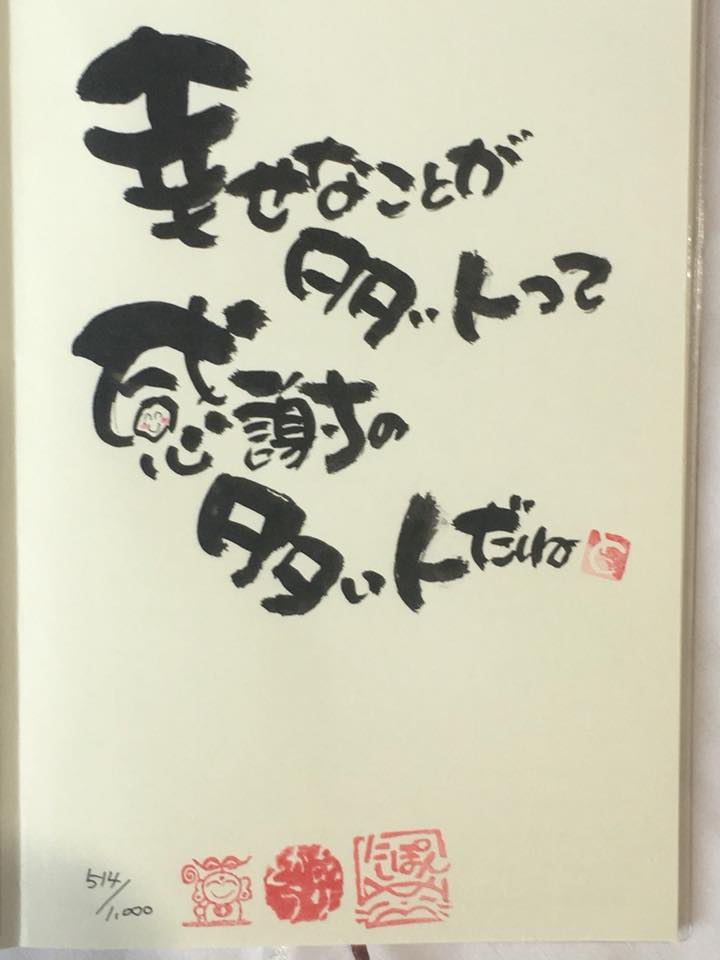 幸せなことが
多い人って
感謝の
多い人だね
514/1,000
にっぽん